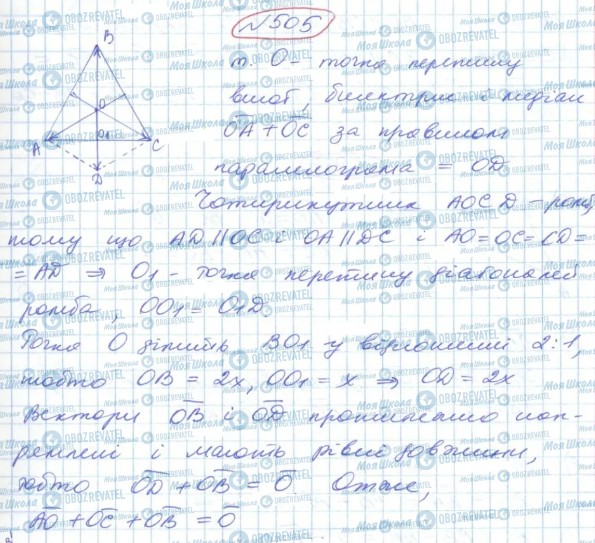 №505
B
O
O₁
A
C
D
т. O - точка перетину
висот, бісектрис і медіан
OA + OC за правилом
паралелограма = OD
Чотирикутник AOCD - ромб,
тому що AD || OC і OA || DC і AO = OC = CD =
= AD ⇒ O₁ - точка перетину діагоналей
ромба, OO₁ = O₁D.
Точка O ділить BO₁ у відношенні 2:1,
тобто OB = 2x, OO₁ = x ⇒ OD = 2x
Вектори OB і OD протилежно нап-
рямлені і мають рівні довжини,
тобто OD + OB = O Отже,
AO + OC + OB = O
Моя Школа OBOZREVATEL